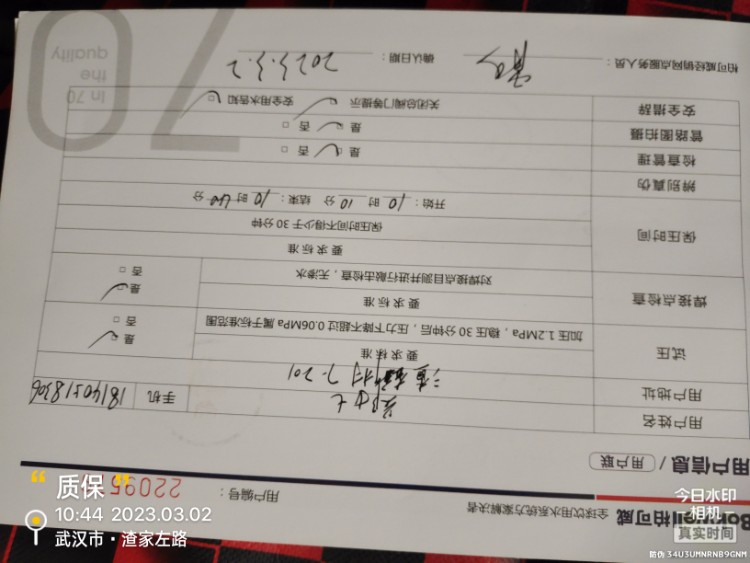 Borwell柏可威 全球饮用水系统方案解决者
用户编号: 22095
用户信息 / 用户联
用户姓名 手机 18140518306
用户地址 7-201
试压
要求标准
加压1.2MPa,稳压30分钟后,压力下降不超过0.06MPa属于标准范围
是
否
焊接点检查
要求标准
对焊接点目测并进行敲击检查,无渗水
是
否
保压时间
要求标准
保压时间不得少于30分钟
开始: 10 时 10 分 结束: 10 时 40 分
辨别真伪
检查管理 是 否
管路图拍摄 是 否
安全措辞 关闭总阀门等提示 安全用水告知
柏可威经销网点服务人员: 确认日期: 2023.3.2
In 70
the
quality
70
质保
10:44 2023.03.02
武汉市·渣家左路
今日水印
相机
真实时间
防伪 34U3UMNRNB9GNM